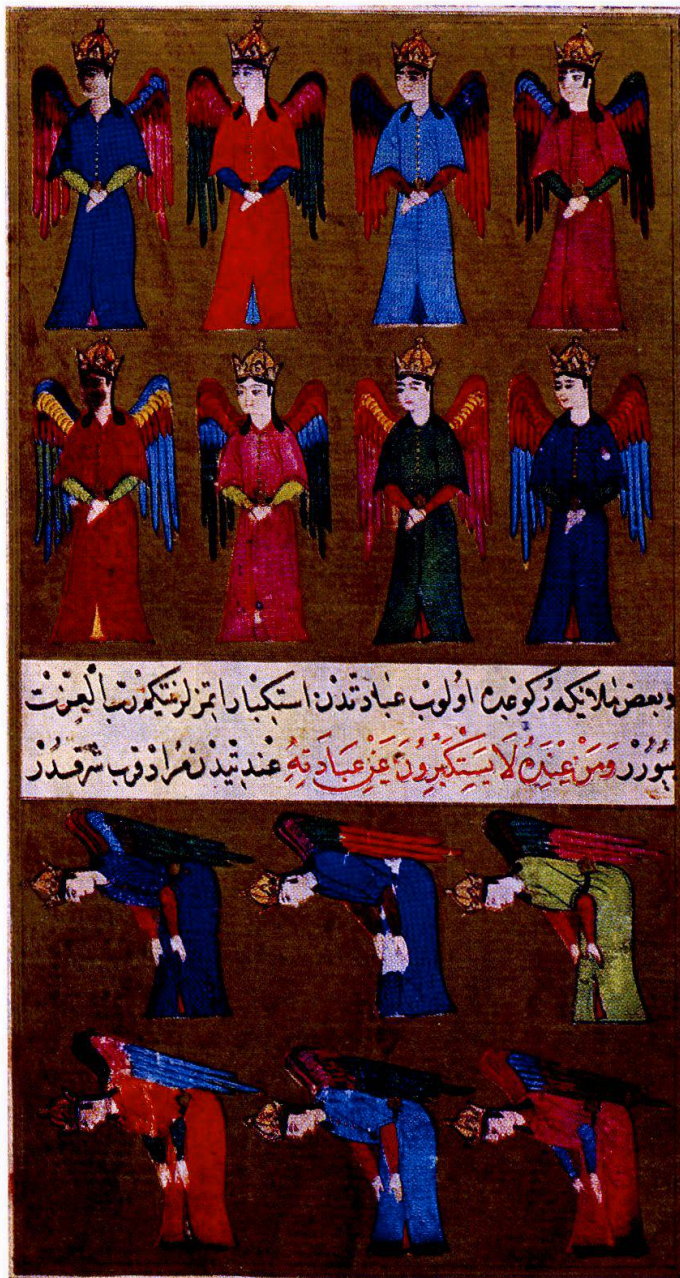 وبعض ملائكه ركوعده اولوب عبادتدن استكبار اتمزلر نتكيم رب العزت
بيورر وَمَنْ عِنْدَهُ لَا يَسْتَكْبِرُونَ عَنْ عِبَادَتِهِ عنديتدن مراد قرب شرفدر